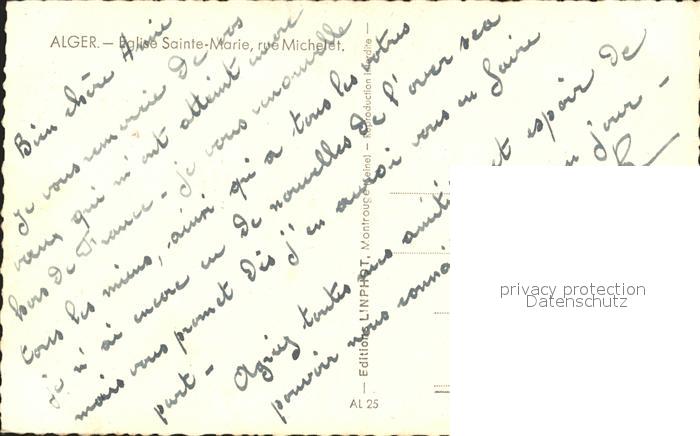 ALGER. — Eglise Sainte-Marie, rue Michelet.
Bien chère Amie
Je vous remercie de vos
vœux qui m'ont atteint encore
hors de France - Je vous renouvelle
tous les miens, ainsi qu'à tous les vôtres
Je n'ai encore eu de nouvelles de l'
mais vous promet dès j'en aurai vous en faire
part - Agréez toutes mes et espoir de
pouvoir nous jour -
Editions LINPHOT, Montrouge (Seine) — Reproduction interdite —
AL 25
privacy protection
Datenschutz